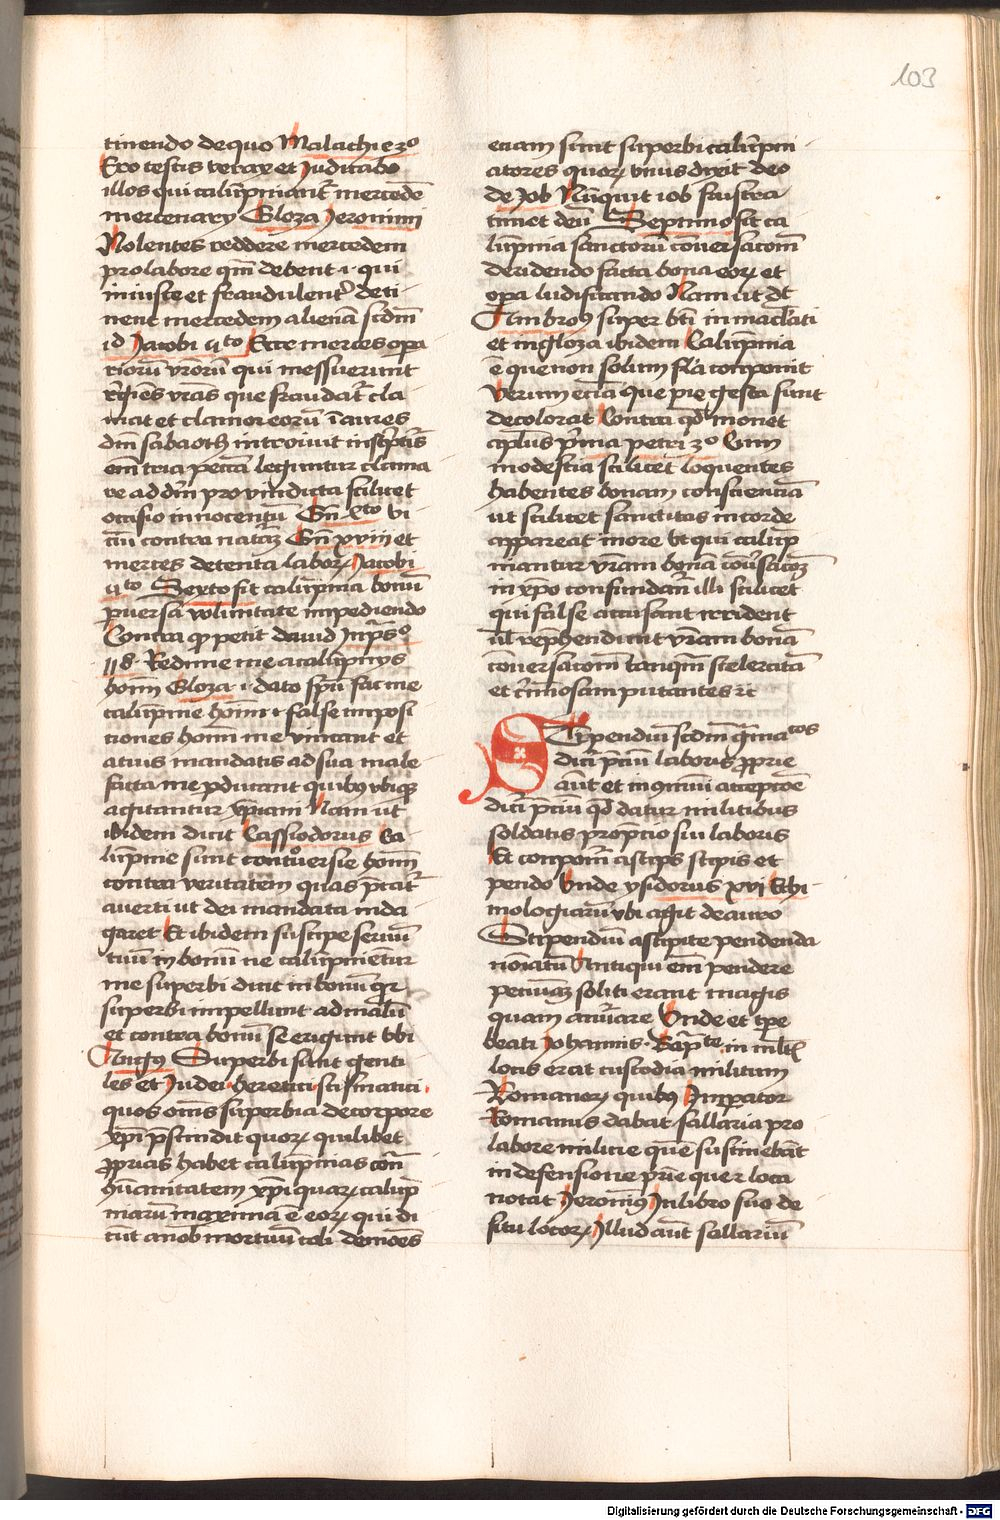 103
tinendo de quo Malachie 3o
Ero testis verax et Judicabo
illos qui calūpniant᷑ mercedē
mercenarꝝ Gloza Jeronimi
Nolentes reddere mercedem
pro labore qm̄ debent ·i· qui
iniuste et fraudulent᷑ deti
nent mercedem alienā scdm̄
id Jacobi 4to Ecce merces opa
riorū vr̄orū qui messuerunt
regiēs vr̄as que fraudat᷑ cla
mat et clamor eorū ī aures
dm̄ sabaoth introiuit
em̄ tria pccā leguntur clama
re ad dm̄ pro vindicta scilicet
occisio innocentū Gn̄ 4to vi
ciū contra natāꝫ Gn̄ xviii et
merces detenta laborꝝ Jacobi
4to Sexto fit calūpnia bonū
puersā voluntate impediendo
Contra qd petit dauid In pso
118 Redime me a calūpnijs
hoīm Gloza ·i· dato spū fac me
calūpnie hoīm ·i· false imposi
ciones hoīm me vincant et
a tuis mandatis ad sua male
facta me pducant quibus vbiqꝫ
agitantur xp̄iani Nam ut
ibidem dicit Cassiodorus Ca
lūpnie sunt controuersie hoīm
contra veritatem quas p̄cat᷑
auerti ut dei mandata inda
garet Et ibidem suscipe seruū
tuū in bonū ne calūpnient᷑
me superbi dicit in bonū qr
superbi impellunt ad malū
et contra bonū se erigunt vbi
Augꝰ Superbi sunt genti
les et Judei heretici scismatici
quos om̄s superbia de corpore
xp̄i p̄scindit quorꝝ quilibet
proprias habet calūpnias contra
hūanitatem xp̄i quarꝝ calūp
niarū maxima ē eorꝝ qui di
cūt a nob mortuū coli demoēs
eciam sunt superbi calūpni
atores quorꝝ vnus dixit deo
de Job Nūquit iob frustra
timet deū Septimo fit ca
lūpnia sanctorū conuersacoēm
deridendo facta bona eorꝝ et
opa ludificando Nam ut dt
Ambrosꝰ super bti in maclati
et in gloza ibidem Calūpnia
ē que non solum fl̄a componit
verum eciā que pie gesta sunt
decolorat Contra qd monet
aplūs prima petri 3o Cum
modestia scilicet loquentes
habentes bonam conscienciā
ut scilicet sanctitas in corde
appareat in ore vt qui calūp
niantur vr̄am bonā cōuersacōꝫ
in xp̄o confundant᷑ illi scilicet
qui false accusant rident
ul rep̄hendunt vr̄am bonā
conuersacoēm tanqm̄ sceleratā
et criminosam putantes ꝛc
Stipendiū scdm gramaticos
dicit᷑ p̄ciū laboris proprie
aūt et in qmuni accepcoē
dicit᷑ p̄ciū qd datur militibus
soldatis pro p̄cio sui laboris
Et componit᷑ a stips stipis et
pendo Vnde ysidorus xvi Ethi
mologiarū vbi agit de auro
Stipendiū a stipite pendenda
noīatū Antiqui em̄ pendere
pecuniāꝫ soliti erant magis
quam anūare Vnde et tpe
beati Johannis Bapte in mltꝭ
locis erat custodia militum
Romanorꝝ quibꝰ Imperator
Romanus dabat sallaria pro
labore milicie quē sustinebāt
in defensione prie quer loca
notat Jeronimꝰ In libro suo de
situ locorꝝ Illud aūt sallariū
Digitalisierung gefördert durch die Deutsche Forschungsgemeinschaft - DFG